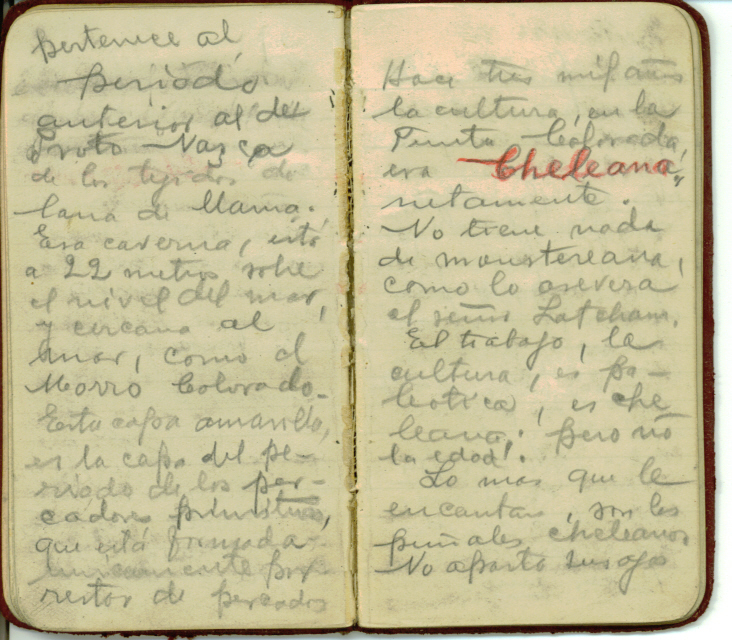 pertenece al
periodo
anterior al del
Proto Nazca
de los tejidos de
lana de llama.
Esa caverna, está
a 22 metros sobre
el nivel del mar,
y cercana al
mar, como el
Morro Colorado.
Esta capa amarilla,
es la capa del pe-
riodo de los pes-
cadores primitivos,
que está formada
unicamente por
restos de pescados
Hace tres mil años
la cultura, en la
Punta Colorada,
era Cheleana,
netamente.
No tiene nada
de moustereana,
como lo asevera
el señor Latcham.
El trabajo, la
cultura, es pa-
leotica, es che
leana; pero no
la edad.
Lo mas que le
encantan, son los
puñales cheleanos
No aparta sus ojos